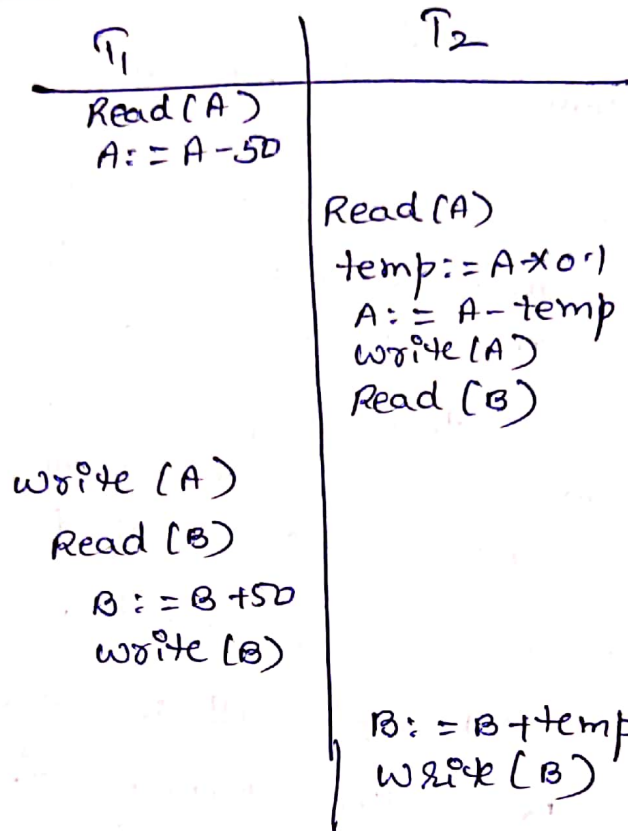 T1 T2
Read (A)
A: = A - 50
Read (A)
temp: = A * 0.1
A: = A - temp
write (A)
Read (B)
write (A)
Read (B)
B: = B + 50
write (B)
B: = B + temp
write (B)